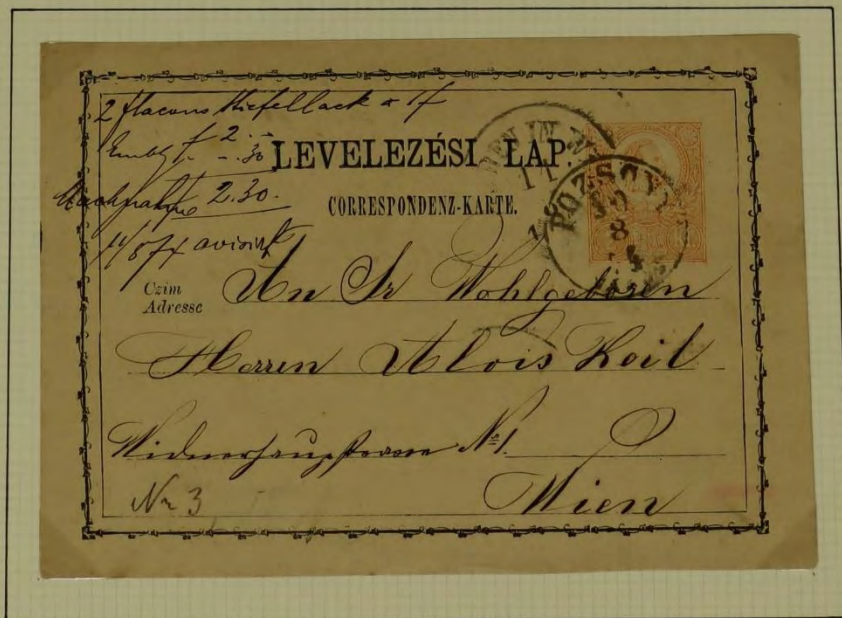 2 flacons Stiefellack a 1f
Embl f 2.-
-.30
Nachnahme 2.30.
11/8 74 avisirt
LEVELEZÉSI LAP.
CORRESPONDENZ-KARTE.
DEN IN W
11
POZSONY
10
8
Czim
Adresse
An Sr Wohlgeboren
Herren Alois Keil
Widnerhauptstrasse № 1.
Nr 3
Wien